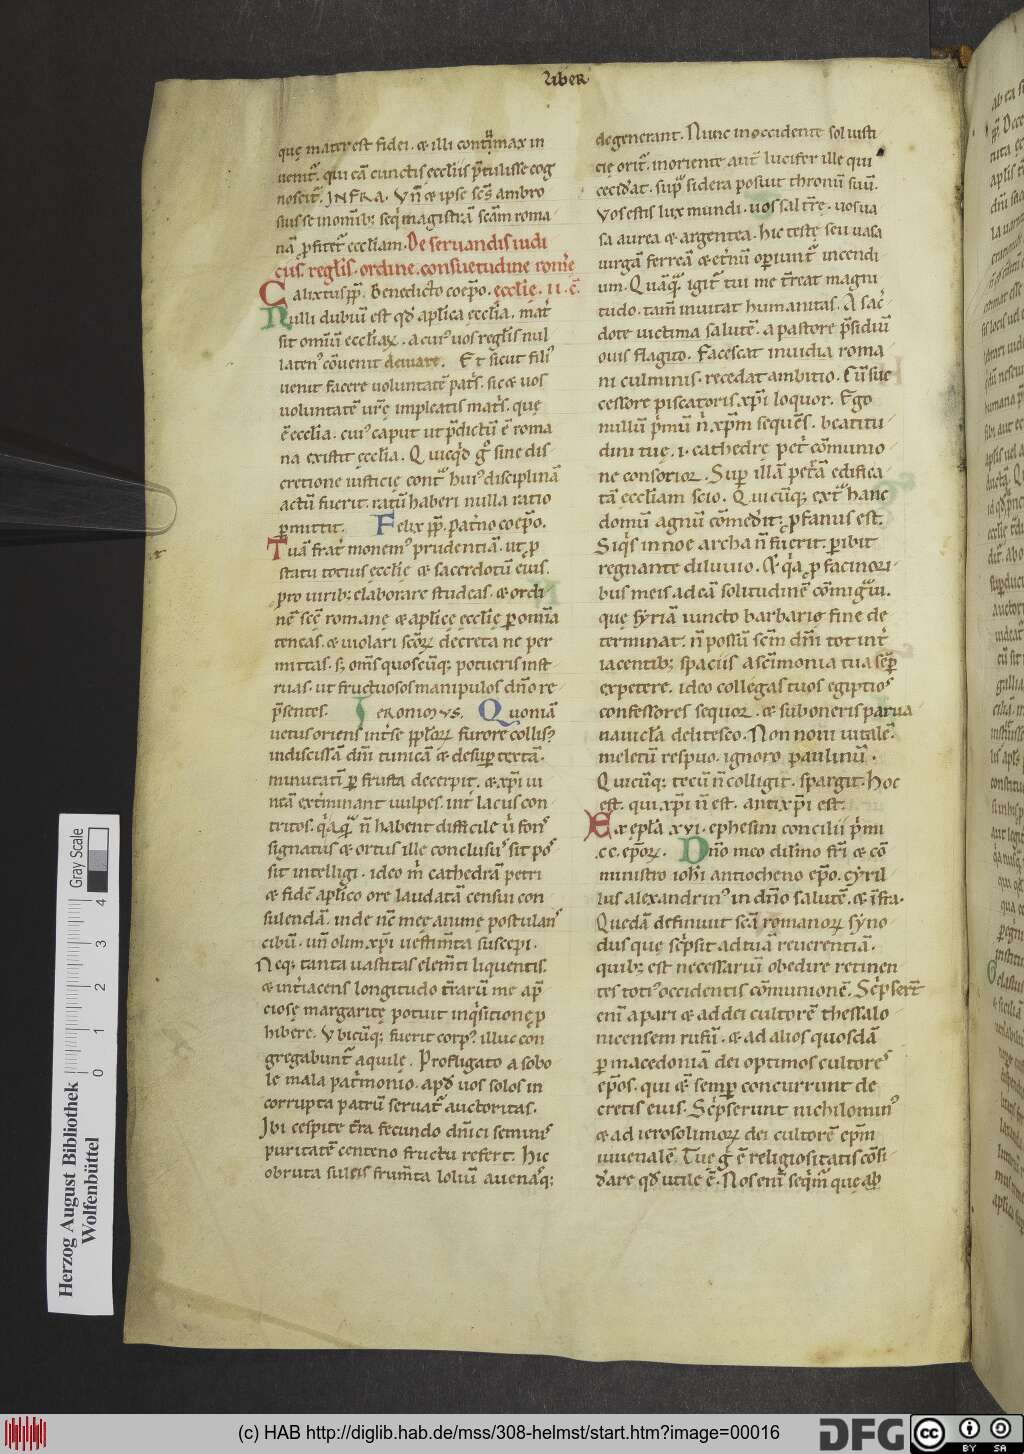 Liber
quę mater est fidei. & illi contͣ̈max in
uenit̃. qui eā cunctis eccl'iis p̃tulisse cog
noscit̃. INFRA. Vn̄ & ipse sc̄s ambro
sius se in omīb; seq̇ magistrā sc̄am roma
nā ꝓfitet̃ eccl'iam. De seruandis iudi
cus. regl'is. ordine. consuetudine rom̄e
Calixtus pp̄. Benedicto coep̄o. ęccl'ię. ii. c̄.
Nulli dubiū est qd̄ ap'lica ęccl'ia. mat̃
sit omiū eccl'iaꝝ. a cui' uos regl'is nul
laten' cōuenit deuiare. Et sicut fili'
uenit facere uoluntatē pat's. sic & uos
uoluntatē ur̄ę impleatis mat's. quę
ē eccl'ia. cui' caput ut p̄dictū ē roma
na existit ęccl'ia. Quicq'd g° sine dis
cretione iusticię contͣ hui' disciplinā
actū fuerit. ratū haberi nulla ratio
ꝑmittit. Felix pp̄. pat̃no coep̄o.
Tuā frat̃ monem' prudentiā. ut ꝓ
statu tocius ęccl'ię & sacerdotū eius.
pro uirib; elaborare studeas. & ordi
nē sc̄ę romanę & ap'licę ęccl'ię ꝑ omnia
teneas. & uiolari sc̄oꝝ decreta ne per
mittas. s; om̄s quoscūq; potueris inst
ruas. ut fructuosos manipulos dn̄o re
p̄sentes. IERONIMVS. Quoniā
uetus oriens int̃ se pp'loꝝ furore collis'
indiscissā dn̄i tunicā & desup̱ textā.
minutatī ꝑ frusta decerpit. & xp̄i ui
neā ext̃minant uulpes. int̃ lacus con
tritos. q'a aquā n̄ habent difficile ů fons
signatus & ortus ille conclusus sit pos
sit intelligi. ideo m̊ cathedrā petri
& fidē ap'lico ore laudatā censui con
sulendā. inde nē meę animę postulans
cibū. un̄ olim xp̄i uestim̄ta suscepi.
Neq; tanta uastitas elem̄ti liquentis.
& int̃iacens longitudo t̃rarū me ap̄
ciosę margaritę potuit inq'sitionę ꝓ
hibere. Vbicūq; fuerit corp'. illuc con
gregabunt̃ aquilę. Profligato a sobo
le mala pat̃monio. apd̄ uos solos in
corrupta patrū seruat̃ auctoritas.
Ibi cespite t̃ra fecundo dn̄ici seminis
puritatē centeno fructu refert. hic
obruta sulcis frum̄ta loliū auenasq;
degenerant. Nunc in occidente sol iusti
cię orit̃. in oriente aut̄ lucifer ille qui
cecid'at. supͣ sidera posuit thronū suū.
Vos estis lux mundi. uos sal t̃rę. uos ua
sa aurea & argentea. hic testę seu uasa
uirgā ferreā & et̃nū opiunt̃ incendi
um. Quāq̄. igit̃ tui me t̃reat magni
tudo. tam̄ inuitat humanitas. A sac̃
dote uictima salutē. a pastore p̄sidiū
ouis flagito. Facescat inuidia roma
ni culminis. recedat ambitio. Cū suc
cessore piscatoris. xp̄i loquor. Ego
nullū p̓mū n̓ xp̄m sequēs. beatitu
dini tuę. i. cathedrę pet̓ cōmunio
ne consotior. Suꝑ illā pet̓ā edifica
tā eccl'iam scio. Quicūq; ext̓ hanc
domū agnū cōmed'it; ꝓfanus est.
Siq's in noe archa n̄ fuerit. ꝑibit
regnante diluuio. & q'a ꝓ facinori
bus meis ad eā solitudinē cōmigͣui.
que syriā iuncto barbarię fine de
terminat. n̄ possū scīm dn̄i tot int̃
iacentib; spaciis a sc̄imonia tua semꝑ
expetere. ideo collegas tuos egiptios
confessores sequor. & sub oneris parua
nauicl'a delitesco. Non noui uitalē.
meletiū respuo. ignoro paulinū.
Quicūq; tecū n̄ colligit. spargit. Hoc
est. qui xp̄i n̄ est. antixp̄i est.
Ex ep'la xvi. ephesini concilii p̓mi
.cc. ep̄oꝝ. Dn̄o meo dil'mo fr̄i & cō
ministro ioh̄i antiocheno ep̄o. cyril
lus alexandrin' in dn̄o salutē. & īfra.
Quedā definiuit sc̄a romanoꝝ syno
dus que sc̓psit ad tuā reuerentiā.
quib; est necessariū obedire retinen
tes toti' occidentis cōmunionē. Sc̓pser̄t
enī a pari & ad dei cultorē thessalo
nicensem rufū. & ad alios quosdā
ꝑ macedoniā dei optimos cultores
ep̄os. qui & semꝑ concurrunt de
cretis eius. Sc̓pserunt nichilomin'
& ad ierosolimoꝝ dei cultorē ep̄m
iuuenalē. Tue g° ē religiositatis cōsi
d'are qd̄ utile ē. Nos enī seq̓m' quę ab
Gray Scale
4
3
2
1
0
Herzog August Bibliothek
Wolfenbüttel
(c) HAB http://diglib.hab.de/mss/308-helmst/start.htm?image=00016
DFG
cc
BY SA